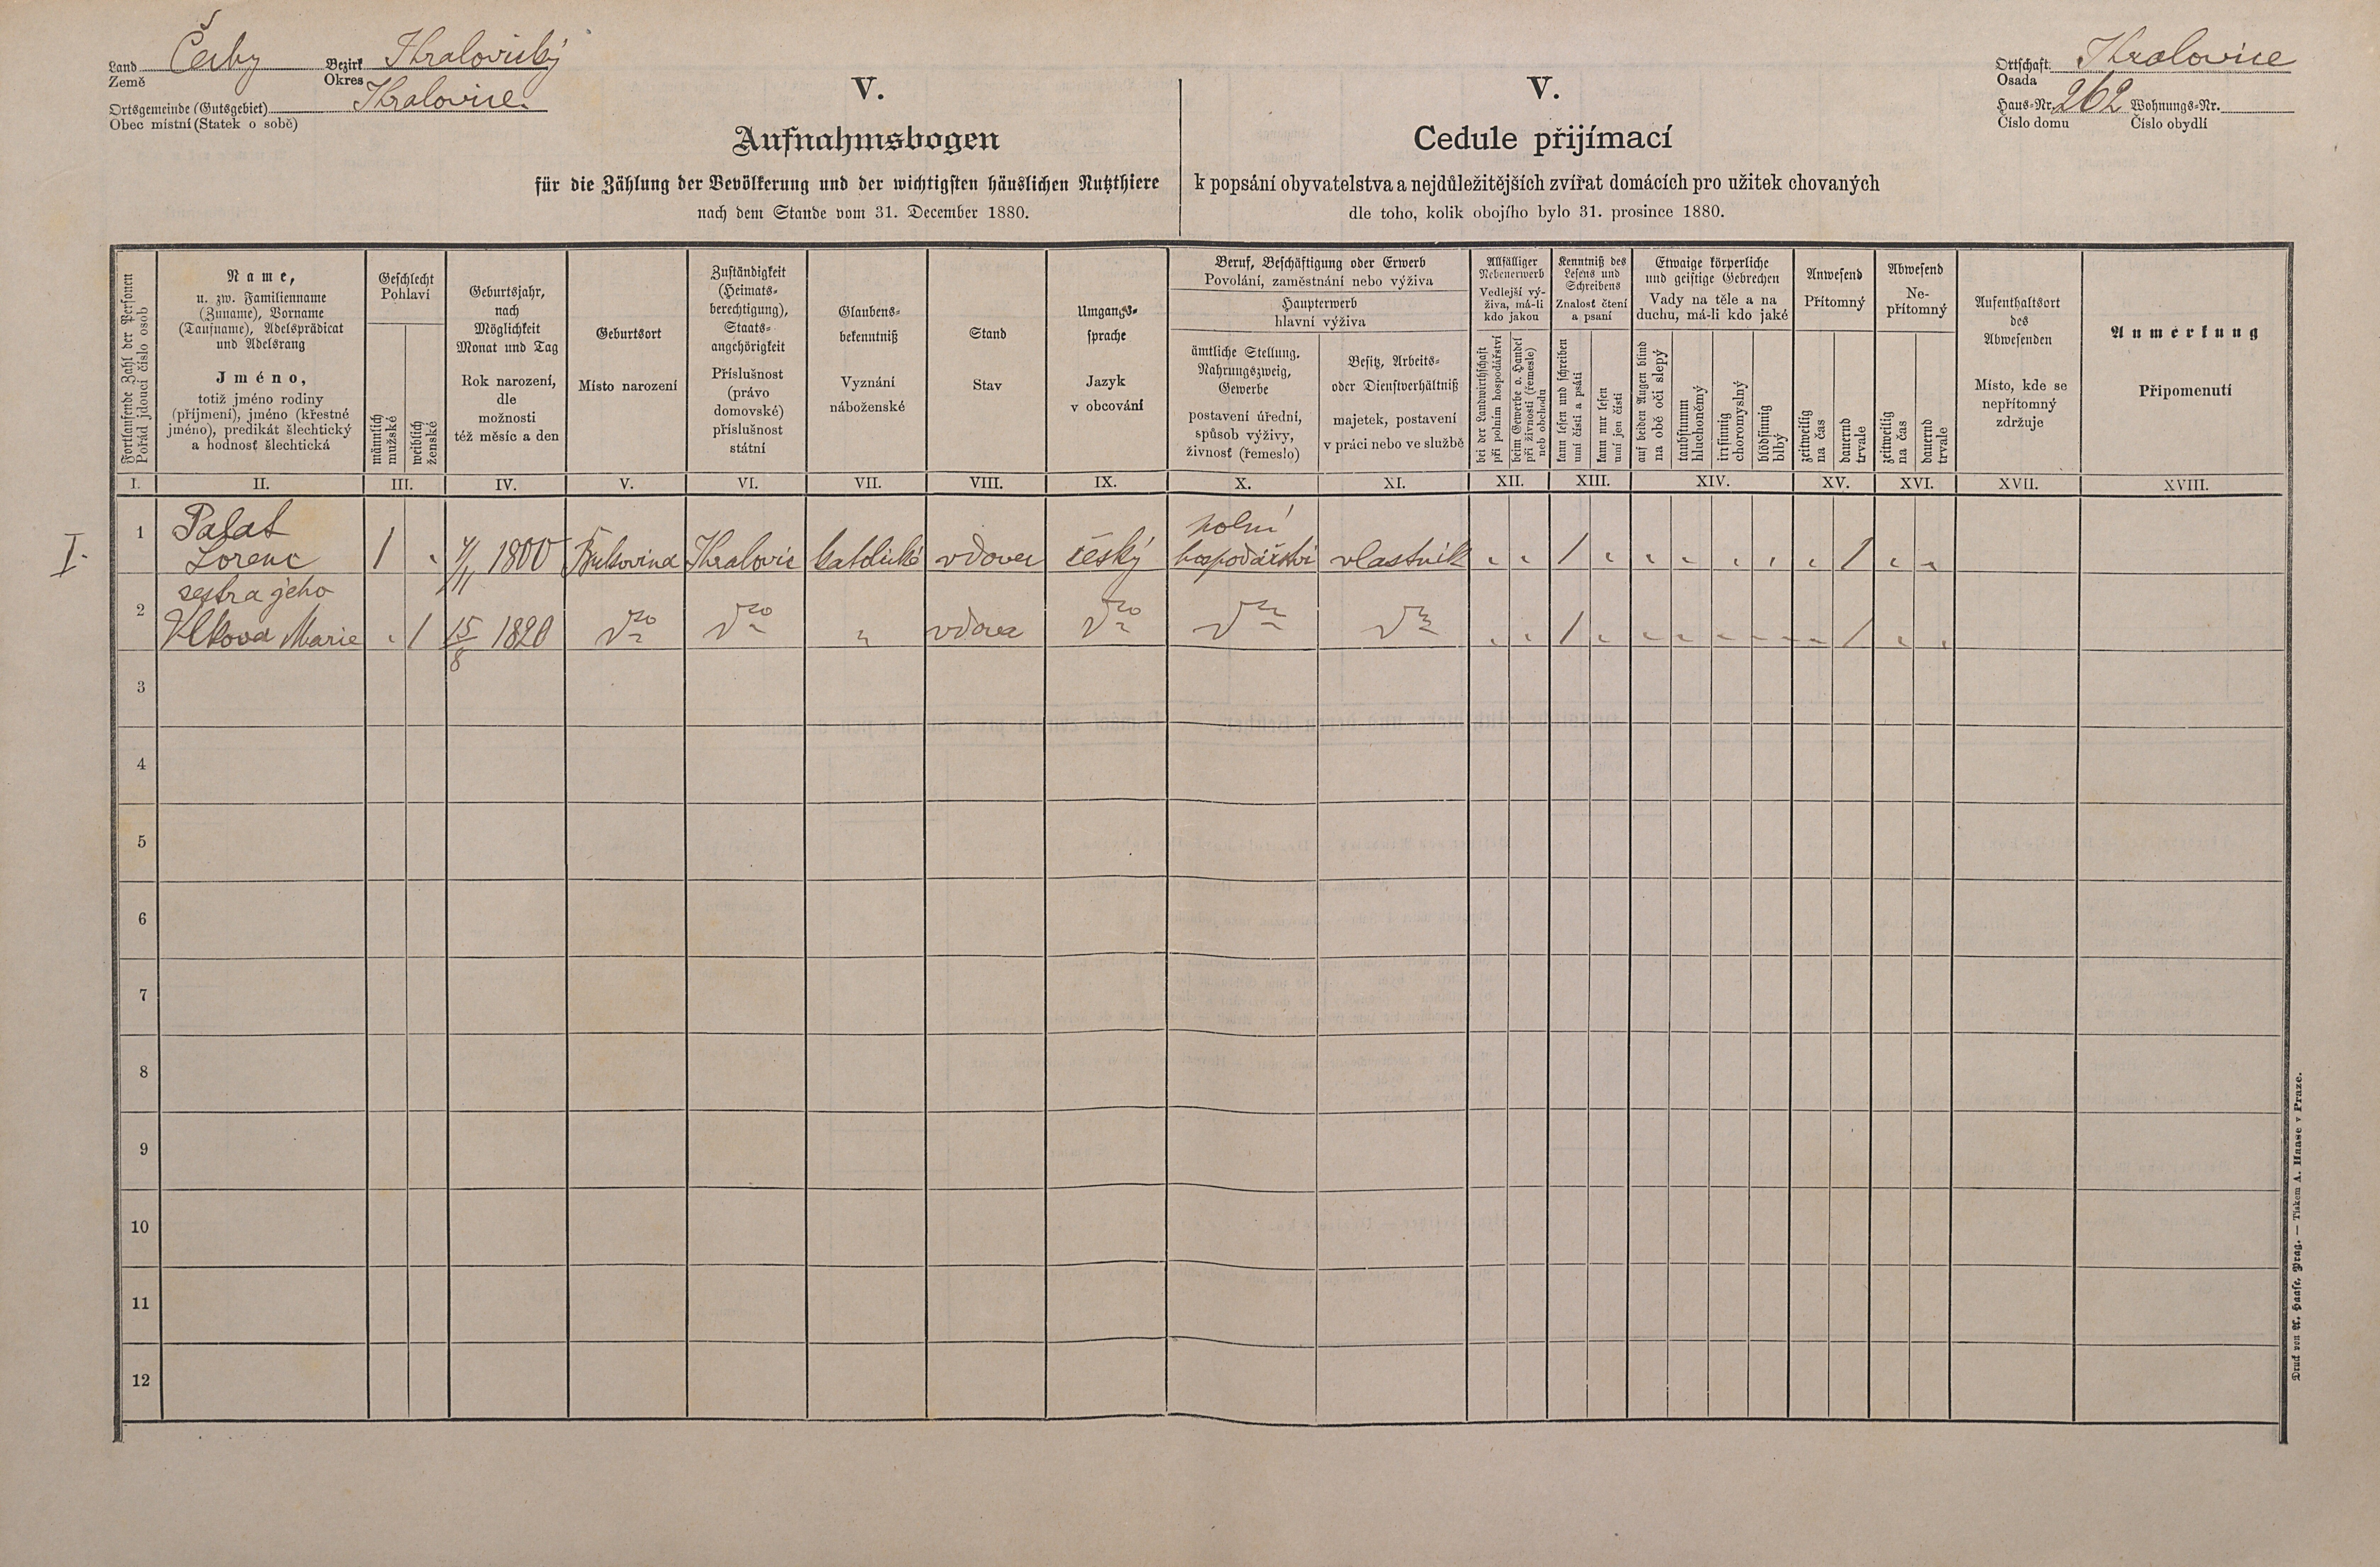 Land Čechy Bezirk Kralovický
Země Okres
Ortsgemeinde (Gutsgebiet) Kralovice
Obec místní (Statek o sobě)
Ortschaft Kralovice
Osada
Haus-Nr. 262 Wohnungs-Nr.
Číslo domu Číslo obydlí
V.
Aufnahmsbogen
für die Zählung der Bevölkerung und der wichtigsten häuslichen Nutzthiere
nach dem Stande vom 31. December 1880.
V.
Cedule přijímací
k popsání obyvatelstva a nejdůležitějších zvířat domácích pro užitek chovaných
dle toho, kolik obojího bylo 31. prosince 1880.
Fortlaufende Zahl der Personen
Pořád jdoucí číslo osob
Name,
u. zw. Familienname
(Zuname), Vorname
(Taufname), Adelsprädicat
und Adelsrang
Jméno,
totiž jméno rodiny
(příjmení), jméno (křestné
jméno), predikát šlechtický
a hodnosť šlechtická
Geschlecht
Pohlaví
männlich
mužské
weiblich
ženské
Geburtsjahr,
nach
Möglichkeit
Monat und Tag
Rok narození,
dle
možnosti
též měsíc a den
Geburtsort
Místo narození
Zuständigkeit
(Heimats-
berechtigung),
Staats-
angehörigkeit
Příslušnost
(právo
domovské)
příslušnost
státní
Glaubens-
bekenntniß
Vyznání
náboženské
Stand
Stav
Umgangs-
sprache
Jazyk
v obcování
Beruf, Beschäftigung oder Erwerb
Povolání, zaměstnání nebo výživa
Haupterwerb
hlavní výživa
ämtliche Stellung,
Nahrungszweig,
Gewerbe
postavení úřední,
spůsob výživy,
živnosť (řemeslo)
Besitz, Arbeits-
oder Dienstverhältniß
majetek, postavení
v práci nebo ve službě
Allfälliger
Nebenerwerb
Vedlejší vý-
živa, má-li
kdo jakou
bei der Landwirthschaft
při polním hospodářství
beim Gewerbe o. Handel
při živnosti (řemesle)
neb obchodu
Kenntniß des
Lesens und
Schreibens
Znalosť čtení
a psaní
kann lesen und schreiben
umí čísti a psáti
kann nur lesen
umí jen čísti
Etwaige körperliche
und geistige Gebrechen
Vady na těle a na
duchu, má-li kdo jaké
auf beiden Augen blind
na obě oči slepý
taubstumm
hluchoněmý
irrsinnig
choromyslný
blödsinnig
blbý
Anwesend
Přítomný
zeitweilig
na čas
dauernd
trvale
Abwesend
Ne-
přítomný
zeitweilig
na čas
dauernd
trvale
Aufenthaltsort
des
Abwesenden
Místo, kde se
nepřítomný
zdržuje
Anmerkung
Připomenutí
I. II. III. IV. V. VI. VII. VIII. IX. X. XI. XII. XIII. XIV. XV. XVI. XVII. XVIII.
I.
1 Palat polní
Lorenc / 1800 Bukovina Kralovic katolické vdovec český hospodářství vlastník / /
2 sestra jeho
Vlkova Marie / 15/8 1820 dto dto " vdova dto dto dto / /
3
4
5
6
7
8
9
10
11
12
Druck von A. Haase, Prag. — Tiskem A. Haase v Praze.